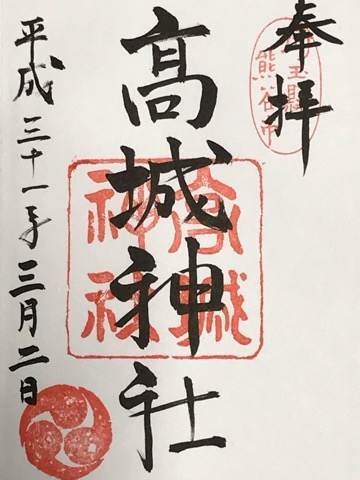 奉拝
埼玉縣
熊谷市
髙城神社
高城
神社
平成三十一年三月二日